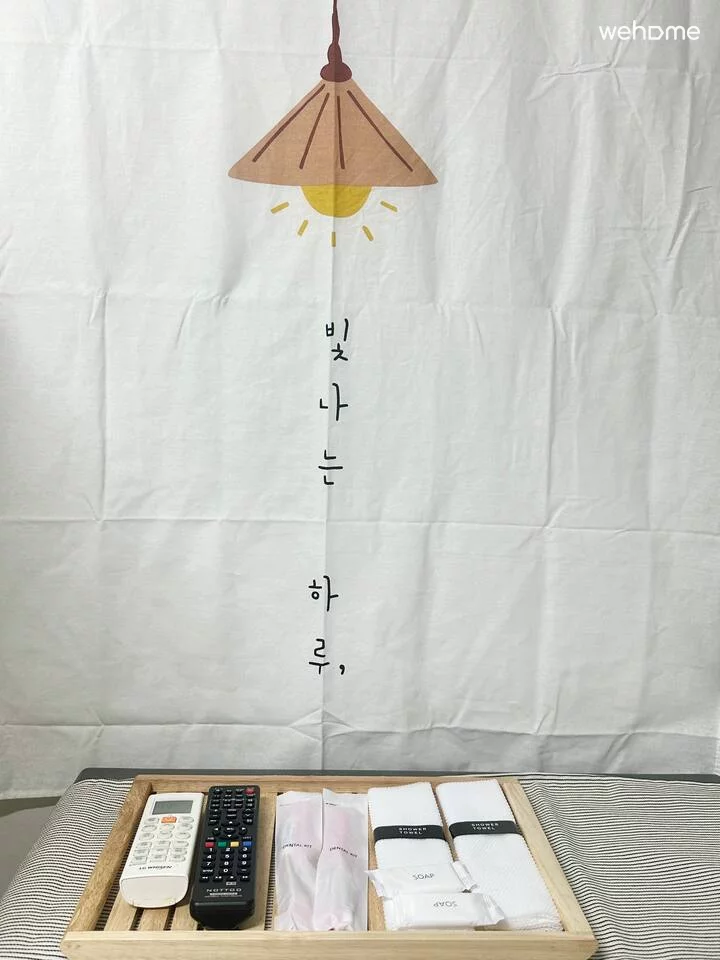 wehome
빛나는 하루,
LG WHISEN
NOTTOO
DENTAL KIT
DENTAL KIT
SHOWER TOWEL
SHOWER TOWEL
SOAP
SOAP